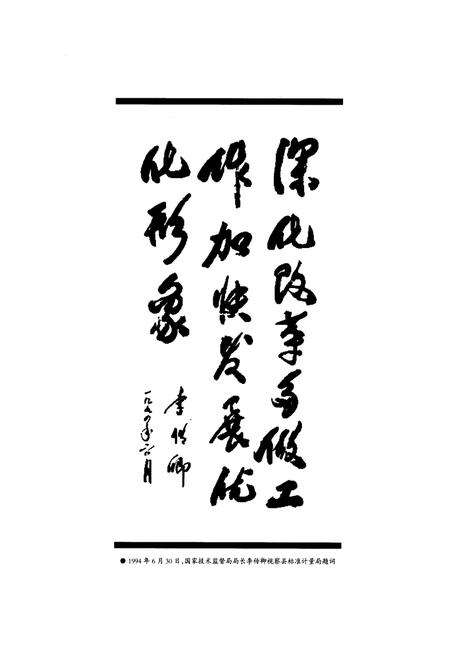 深化改革多做工
作加快发展优
化形象
李传卿
一九九四年六月
●1994年6月30日,国家技术监督局局长李传卿视察县标准计量局题词